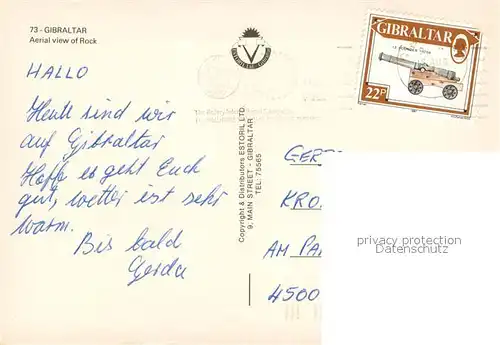 73 - GIBRALTAR
Aerial view of Rock
HALLO
Heute sind wir
auf Gibraltar
Hoffe es geht Euch
gut, wetter ist sehr
warm.
Bis bald
Gerda
ESTORIL LTD
Copyright & Distributors ESTORIL LTD
9, MAIN STREET - GIBRALTAR
TEL: 75565
GIBRALTAR
22P
GER
KRO
AM PA
4500
privacy protection
Datenschutz